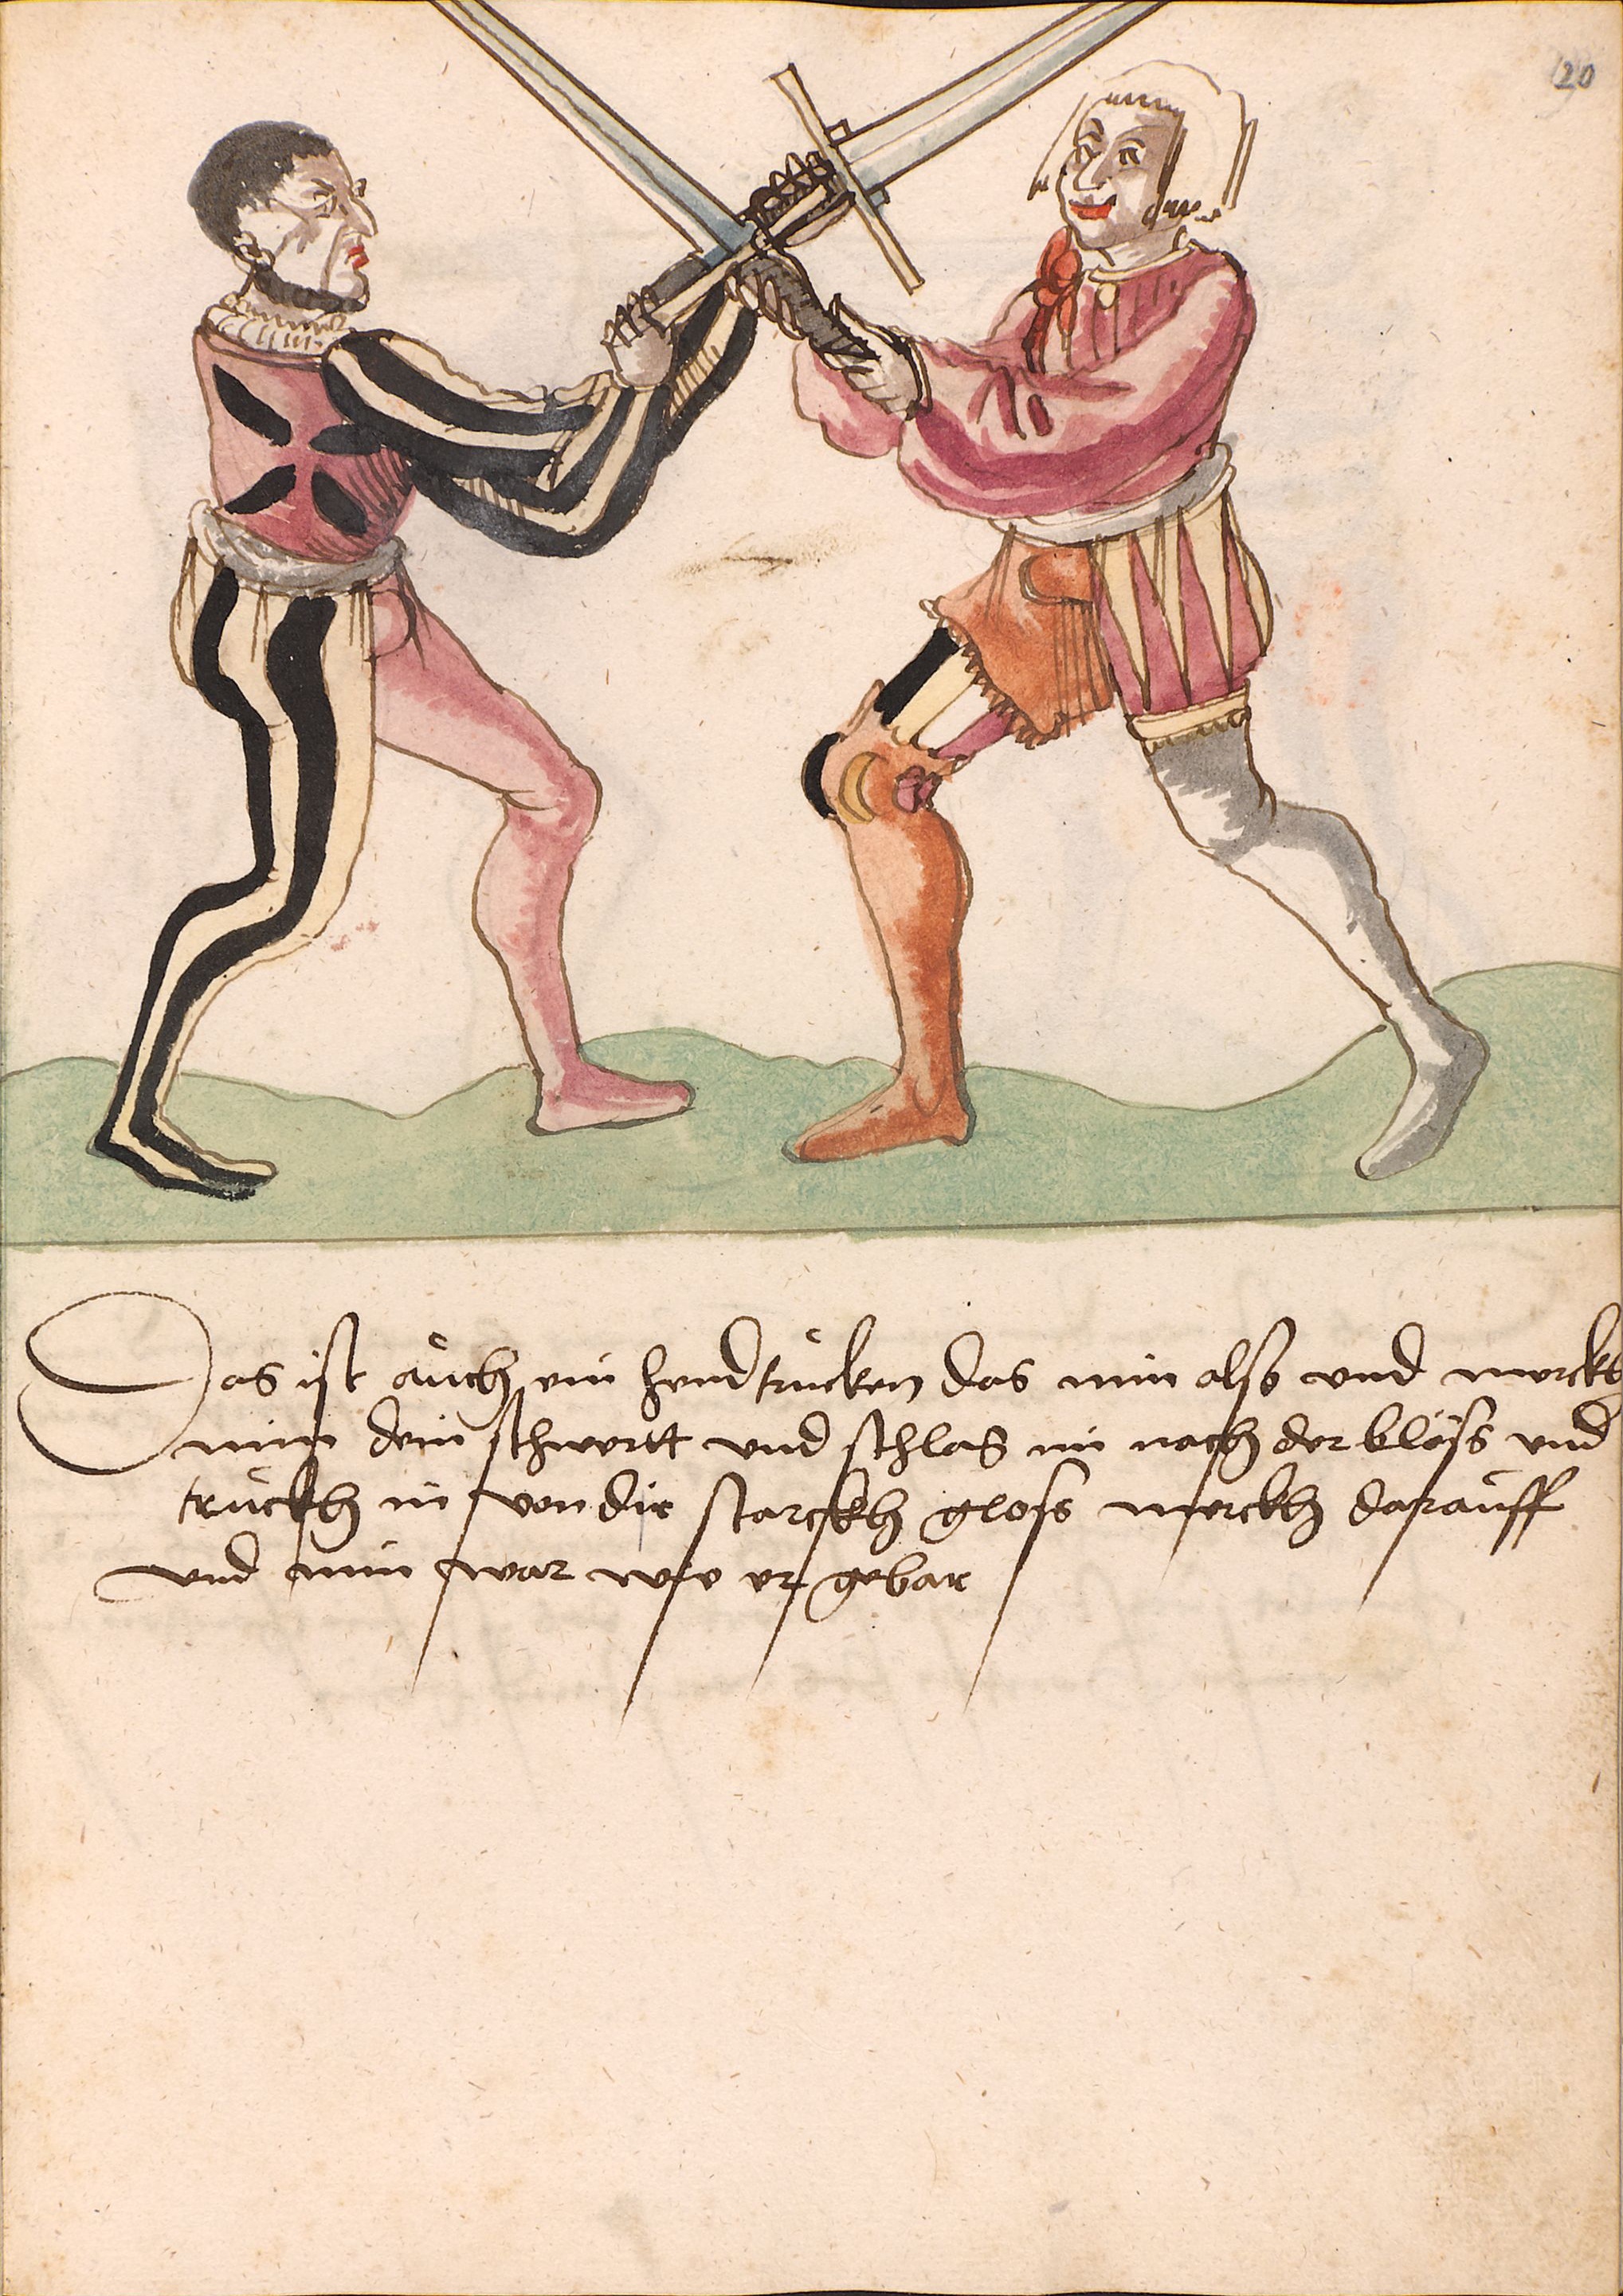 20
Das ist auch ein hendtrucken das nim also und merckt
nim dein schwertt und schlag im nach der blöss und
truckh in von dir starckh gloss merckh darauff
und nim war wie er gebar